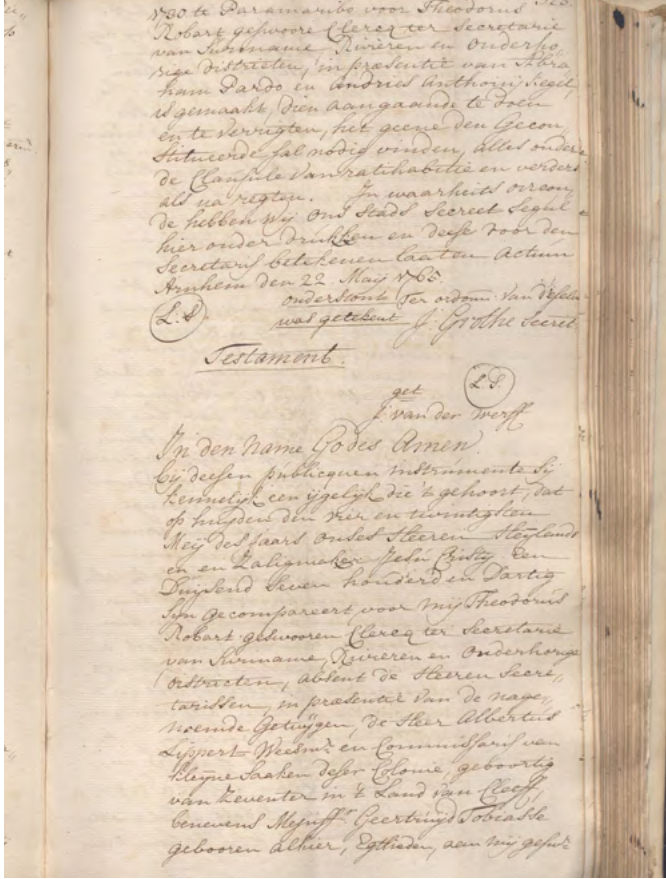 1730 te Paramaribo voor Theodorus
Robart geswoore Clercq ter Secretarie
van Suriname, Rivieren en onderho„
rige districten, in præsentie van Abra
ham Pardo en Andries Anthonij Segel,
is gemaakt, dien aangaande te doen
en te verrigten, het geene den Gecon„
stitueerde sal nodig vinden, alles onder
de Clausule van ratihabitie en verders
als na regten. In waarheits oircon„
de hebben wij ons Stads Secreet Segul
hier onder drukken en deese voor den
Secretaris betekenen laaten Actum
Arnhem den 22 Maij 1765.
onderstont Ter ordonn: van deselve
was getekent J: Grothe Secret
L: S
Testament.
L S.
get
J: van der Werff
In den Name Godes Amen.
bij deesen publicquen instrumente Sij
kennelijk een ijgelijk die 't gehoort, dat
op huijden den vier en twintigsten
Meij des Jaars onses Heeren Heijlands
en en Zaligmaker Jesu Cristy Een
Duijsend Seven honderd en Dartig
sijn gecompareert voor mij Theodorus
Robart geswooren Clercq ter Secretarie
van Suriname, Rivieren en Onderhorige
districten, absent de Heeren Secre„
tarissen, in præsentie van de nage„
noemde Getuijgen, de Heer Albertus
Lippert Weesmr en Commissaris van
kleijne Saaken deser Colonie, geboortig
van Zeventer in 't Land van Cleeff,
benevens Mejuffr. Geertruijd Tobiasse
gebooren alhier, Egtlieden, aan mij geswr